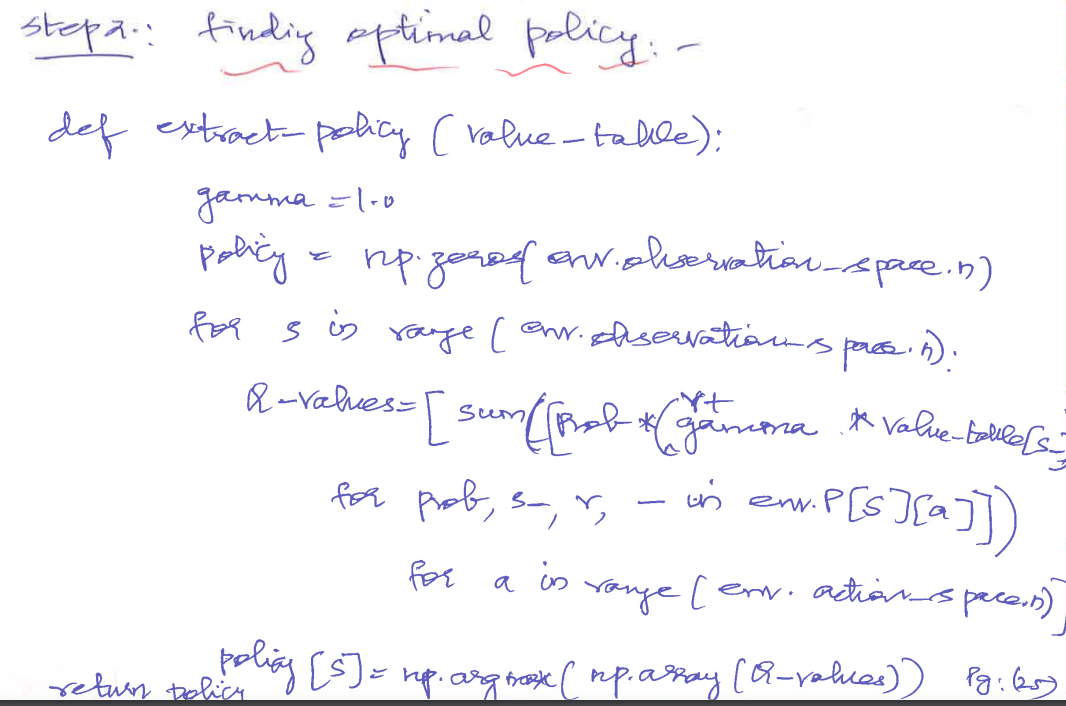 step2.: finding optimal policy: -
def extract-policy (value-table):
gamma = 1.0
policy = np.zeros(env.observation-space.n)
for s in range (env.observation-space.n):
Q-values=[sum([Prob*(r+ gamma * value-table[s-]
for prob, s-, r, - in env.P[s][a]])
for a in range (env. action-space.n)]
policy [s] = np.argmax( np.array (Q-values)) Pg: (25)
return policy